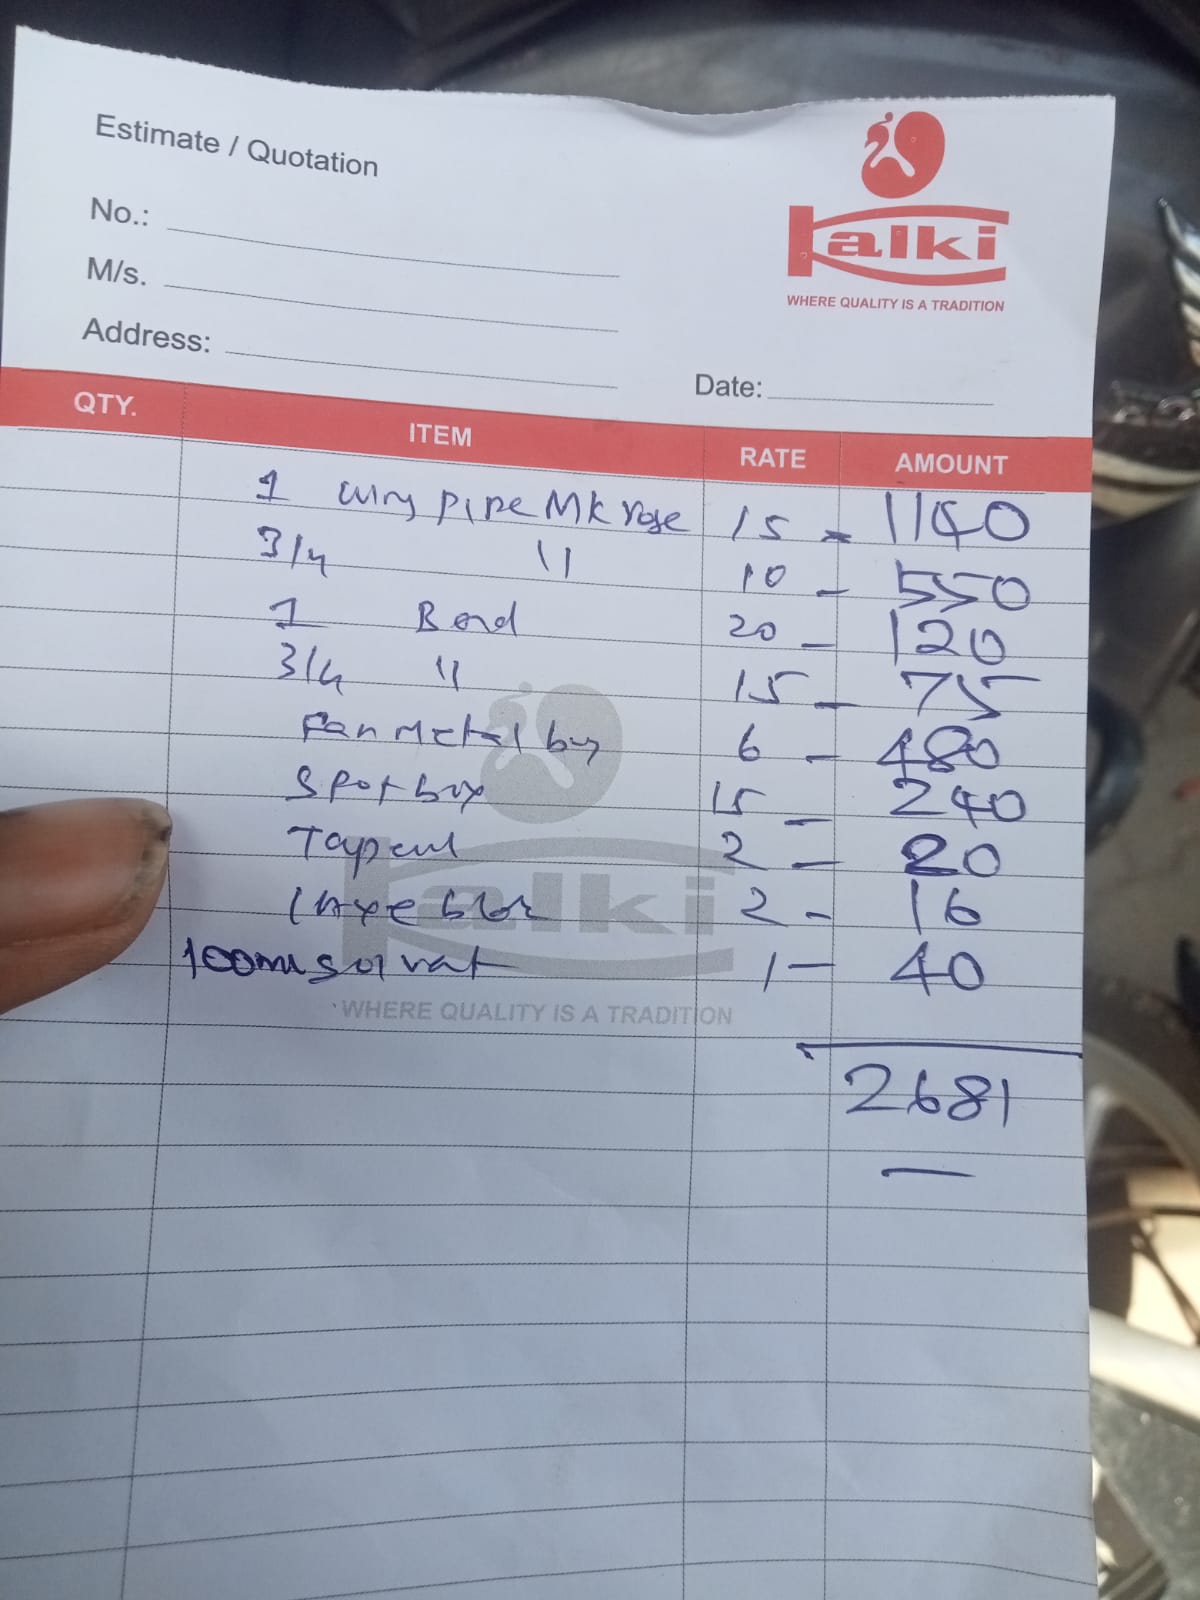 Estimate / Quotation
No.:
M/s.
Address:
Kalki
WHERE QUALITY IS A TRADITION
Date:
QTY. ITEM RATE AMOUNT
1 Pipe Mk rose 15 - 1140
3/4 " 10 - 550
1 Bend 20 - 120
3/4 " 15 - 75
Fan Metal 6 - 480
Spot box 15 - 240
2 - 20
2 - 16
100ml 1 - 40
Kalki
WHERE QUALITY IS A TRADITION
2681